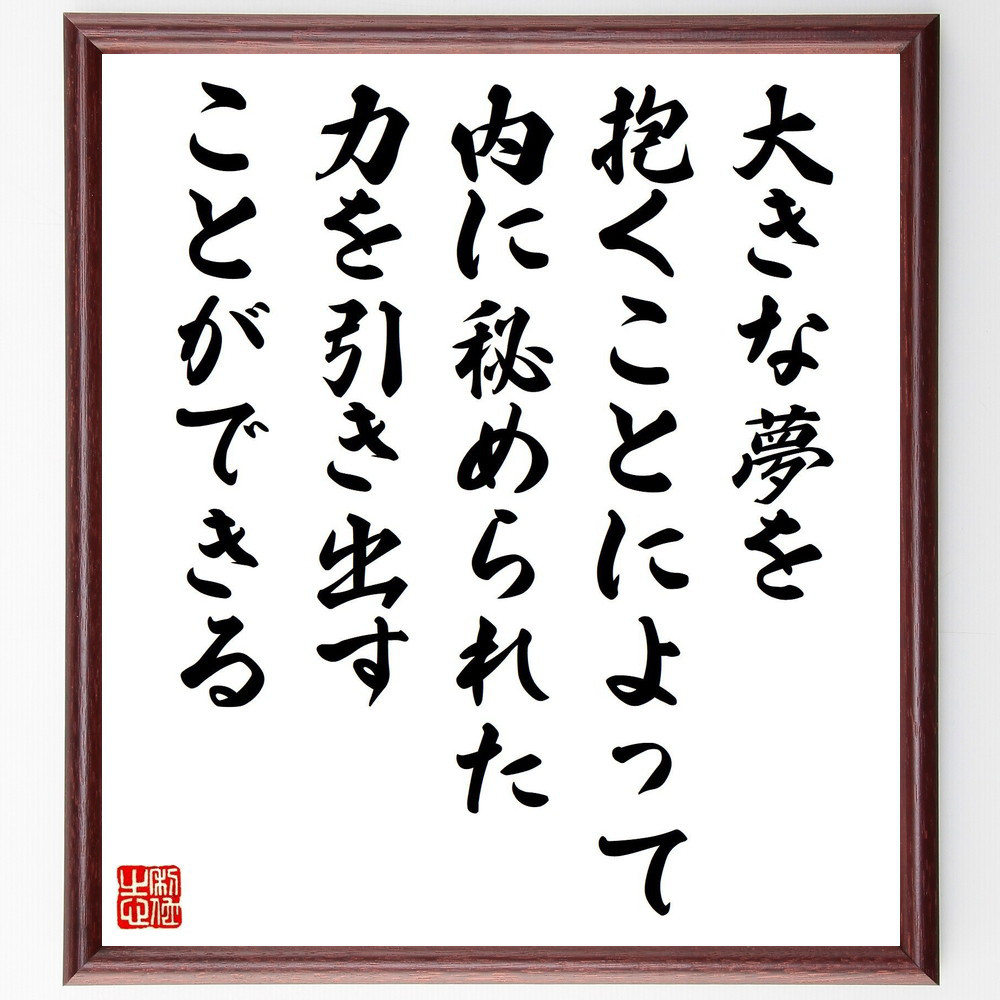 大きな夢を
抱くことによって
内に秘められた
力を引き出す
ことができる